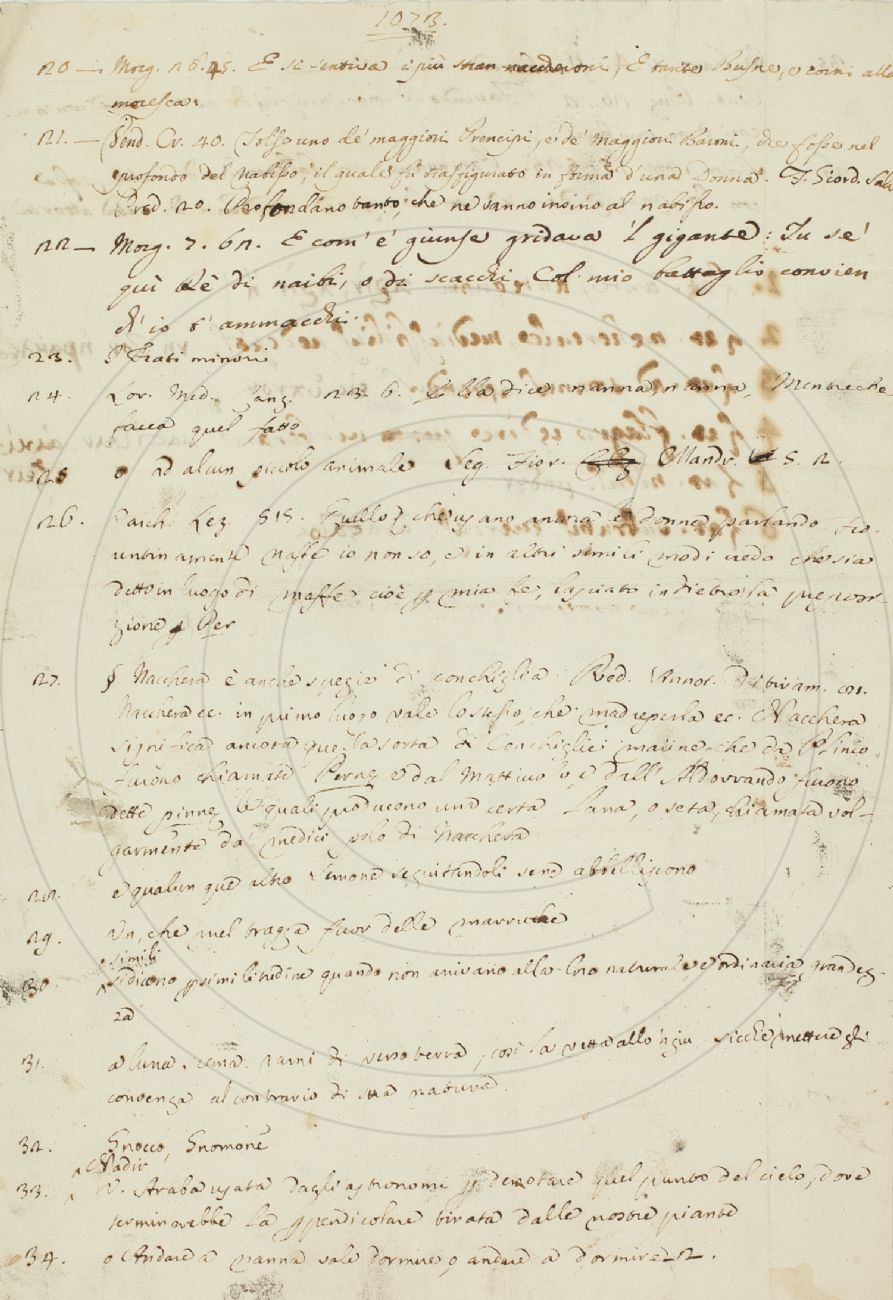 1073.
20 — Morg. 26. 45. E si sentiva i più stran naccheroni, E tante Busne, e corni alla
moresca:
21. — Pend. Cr. 40. Tolse uno de' maggiori Prencipi, e de' maggiori Baroni, che fosse nel
profondo del Nabisso, il quale fu trasfigurato in forma d'una Donna. F. Giord. Salv.
Pred. 20. Profondano tanto, che ne vanno insino al nabisso.
22 — Morg. 7. 62. E com' e' giunse gridava 'l gigante: Tu se'
quì Rè di naibi, o di scacchi Col mio battaglio convien
ch' io t' ammacchi.
23. Frati minori
24. Lor. Med. Canz. 23. 6. Ella dice nanna, nanna, Mentre che
facea quel fatto
25 o ad alcun piccolo animale Seg. Fior. Mandr. 5. 2.
26. Varch. Lez. 515. Quello, che usano ancora le Donne parlando Fio-
rentinamente naffe io non so, e in altri simili modi credo che sia
detto in luogo di maffe cioè p mia fe, lasciato indietro la preposi-
zione Per
27. § Nacchera è anche spezie di conchiglia. Red. Annot. Ditiram. 101.
Nacchera ec. in primo luogo vale lo stesso, che madreperla ec. Nacchera
significa ancora quella sorta di Conchiglie marine che da Plinio
furono chiamate Perne e dal Mattiuolo, e dall' Aldovrando furono
dette pinne le quali producono una certa lana, o seta, chiamata vol-
garmente da' medici pelo di Nacchera
28. e qualunque altro Limone seguitandoli sene abbelliscono
29. Un, che nel tragga fuor delle marruche
simili
30 si dicono p similitudine quando non arrivano alla loro naturale e ordinaria grandez-
za
31. a luna scema rami di verso terra, così la vetta allo 'ngiu sicchè mettere gli
convenga al contrario di sua natura
32. Gnocco, Gnomone
Nadir
33. V. Araba usata dagli astronomi p denotare quel punto del cielo, dove
terminerebbe la ppendicolare tirata dalle nostre piante
34. o Andare a nanna vale dormire, o andare a dormire 2.